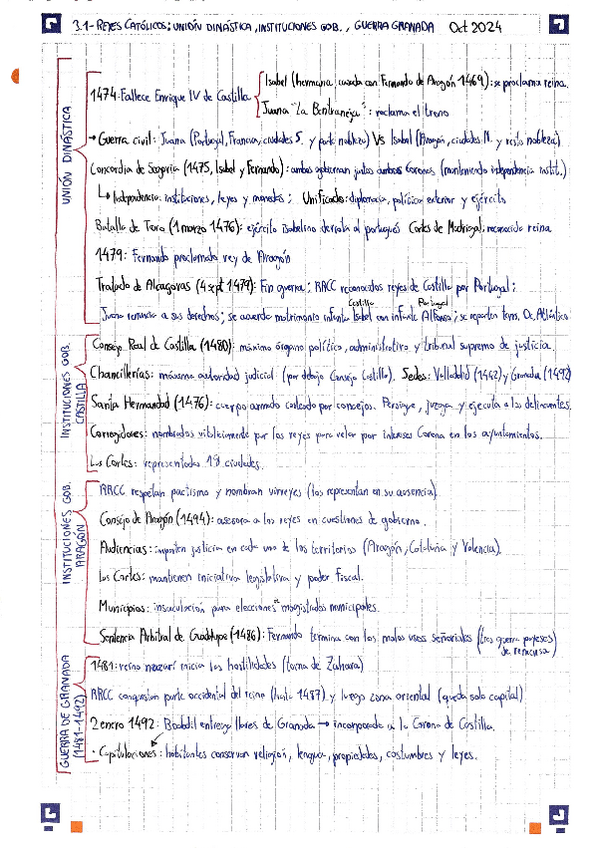 3.1- REYES CATÓLICOS: UNIÓN DINÁSTICA, INSTITUCIONES GOB., GUERRA GRANADA Oct 2024
UNIÓN DINÁSTICA
Isabel (hermana; casada con Fernando de Aragón 1469): se proclama reina.
1474: Fallece Enrique IV de Castilla
Juana "La Beltraneja": reclama el trono
→ Guerra civil: Juana (Portugal, Francia, ciudades S. y parte nobleza) Vs Isabel (Aragón, ciudades N. y resto nobleza)
Concordia de Segovia (1475, Isabel y Fernando): ambos gobiernan juntos ambas Coronas (manteniendo independencia instit.)
↳ Independencia: instituciones, leyes y monedas; Unificado: diplomacia, política exterior y ejército
Batalla de Toro (1 marzo 1476): ejército isabelino derrota al portugués Cortes de Madrigal: reconocida reina
1479: Fernando proclamado rey de Aragón
Tratado de Alcaçovas (4 sept 1479): Fin guerra; RRCC reconocidos reyes de Castilla por Portugal;
Castilla Portugal
Juana renuncia a sus derechos; se acuerda matrimonio infanta Isabel con infante Alfonso; se reparten terr. Oc. Atlántico
INSTITUCIONES GOB. CASTILLA
Consejo Real de Castilla (1480): máximo órgano político, administrativo y tribunal supremo de justicia.
Chancillerías: máxima autoridad judicial (por debajo Consejo Castilla). Sedes: Valladolid (1442) y Granada (1492)
Santa Hermandad (1476): cuerpo armado costeado por concejos. Persigue, juzga y ejecuta a los delincuentes.
Corregidores: nombrados vitaliciamente por los reyes para velar por intereses Corona en los ayuntamientos.
Las Cortes: representadas 18 ciudades.
INSTITUCIONES GOB. ARAGÓN
RRCC respetan pactismo y nombran virreyes (los representan en su ausencia)
Consejo de Aragón (1494): asesora a los reyes en cuestiones de gobierno.
Audiencias: imparten justicia en cada uno de los territorios (Aragón, Cataluña y Valencia).
Las Cortes: mantienen iniciativa legislativa y poder fiscal.
Municipios: insaculación para elecciones magistrados municipales.
Sentencia Arbitral de Guadalupe (1486): Fernando termina con los malos usos señoriales (tras guerra payeses de remensa)
GUERRA DE GRANADA (1481-1492)
1481: reino nazarí inicia las hostilidades (toma de Zahara)
RRCC conquistan parte occidental del reino (hasta 1487) y luego zona oriental (queda solo capital)
2 enero 1492: Boabdil entrega llaves de Granada → incorporada a la Corona de Castilla.
· Capitulaciones: habitantes conservan religión, lengua, propiedades, costumbres y leyes.